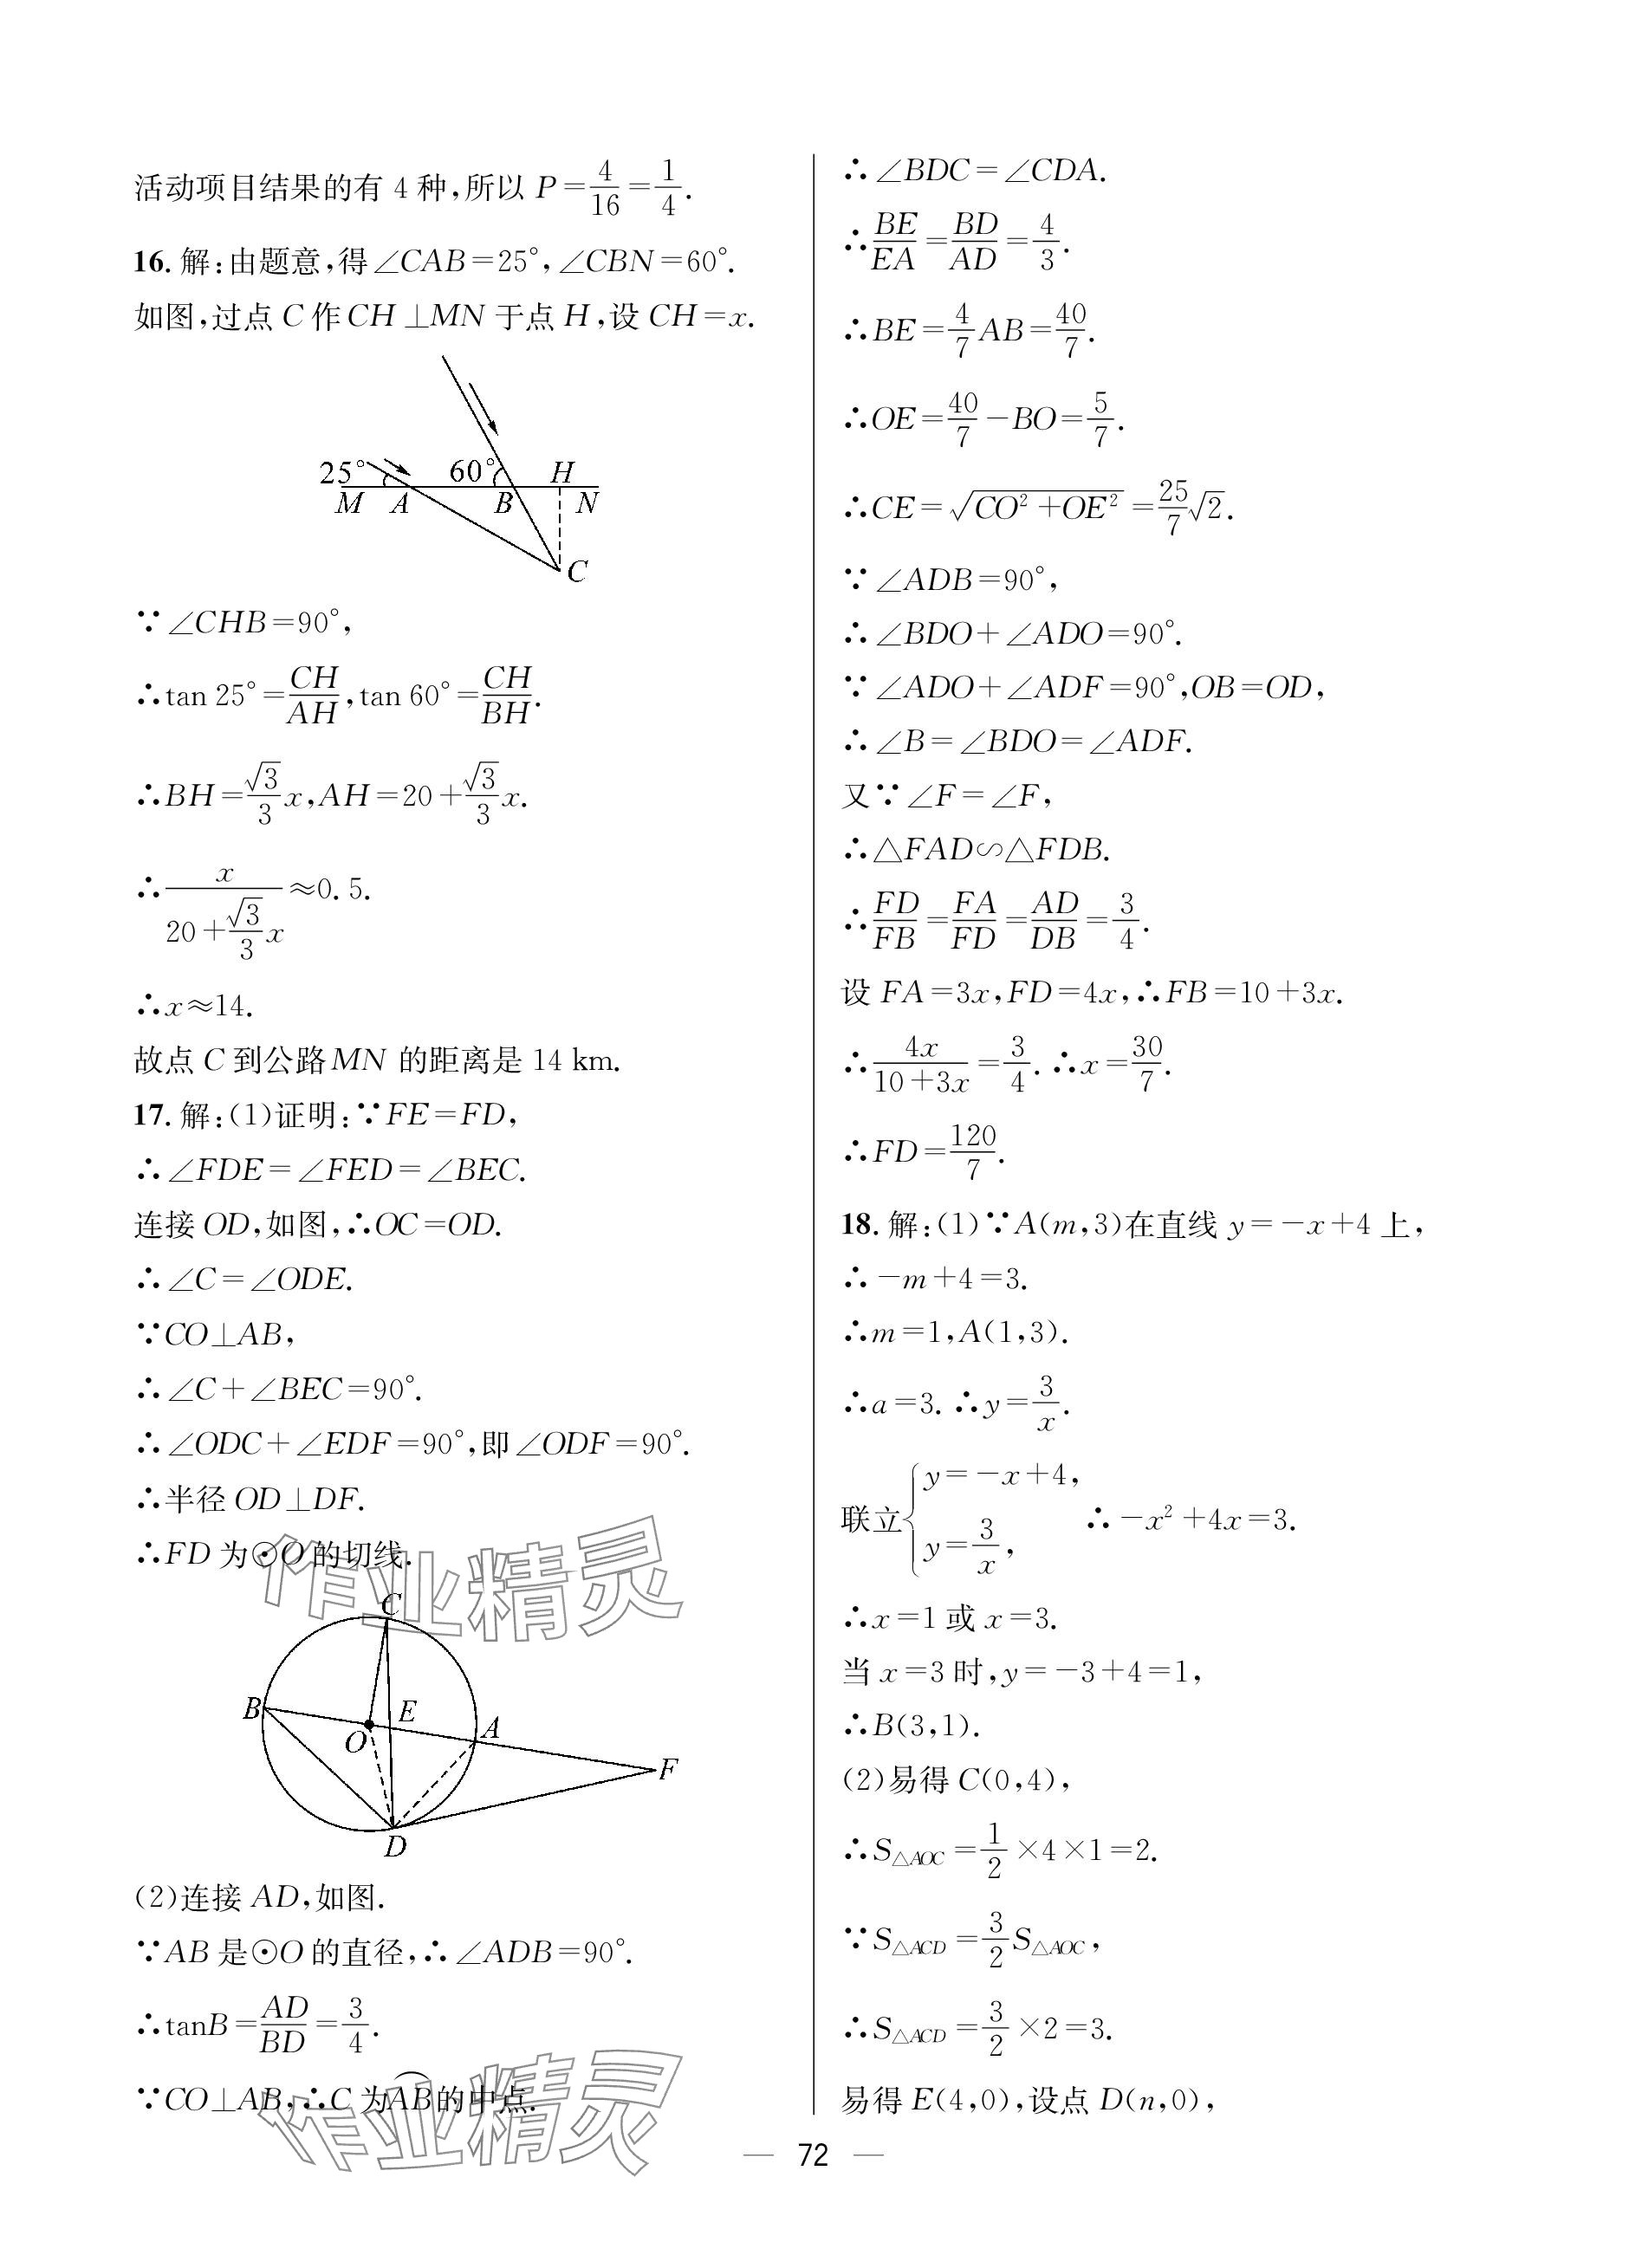 活动项目结果的有 4 种,所以 P=4/16=1/4.
16. 解:由题意,得∠CAB=25°,∠CBN=60°.
如图,过点 C 作 CH⊥MN 于点 H,设 CH=x.
25° 60° H
M A B N
C
∵∠CHB=90°,
∴tan 25°=CH/AH,tan 60°=CH/BH.
∴BH=√3/3 x,AH=20+√3/3 x.
∴x/(20+√3/3 x)≈0.5.
∴x≈14.
故点 C 到公路 MN 的距离是 14 km.
17. 解:(1)证明:∵FE=FD,
∴∠FDE=∠FED=∠BEC.
连接 OD,如图,∴OC=OD.
∴∠C=∠ODE.
∵CO⊥AB,
∴∠C+∠BEC=90°.
∴∠ODC+∠EDF=90°,即∠ODF=90°.
∴半径 OD⊥DF.
∴FD 为⊙O 的切线.
作业精灵
C
B E
O A
F
D
(2)连接 AD,如图.
∵AB 是⊙O 的直径,∴∠ADB=90°.
∴tanB=AD/BD=3/4.
∵CO⊥AB,∴C 为⌒AB的中点.
作业精灵
∴∠BDC=∠CDA.
∴BE/EA=BD/AD=4/3.
∴BE=4/7 AB=40/7.
∴OE=40/7-BO=5/7.
∴CE=√(CO²+OE²)=25/7 √2.
∵∠ADB=90°,
∴∠BDO+∠ADO=90°.
∵∠ADO+∠ADF=90°,OB=OD,
∴∠B=∠BDO=∠ADF.
又∵∠F=∠F,
∴△FAD∽△FDB.
∴FD/FB=FA/FD=AD/DB=3/4.
设 FA=3x,FD=4x,∴FB=10+3x.
∴4x/(10+3x)=3/4.∴x=30/7.
∴FD=120/7.
18. 解:(1)∵A(m,3)在直线 y=-x+4 上,
∴-m+4=3.
∴m=1,A(1,3).
∴a=3.∴y=3/x.
联立{y=-x+4, y=3/x, ∴-x²+4x=3.
∴x=1 或 x=3.
当 x=3 时,y=-3+4=1,
∴B(3,1).
(2)易得 C(0,4),
∴S△AOC=1/2×4×1=2.
∵S△ACD=3/2 S△AOC,
∴S△ACD=3/2×2=3.
易得 E(4,0),设点 D(n,0),
— 72 —